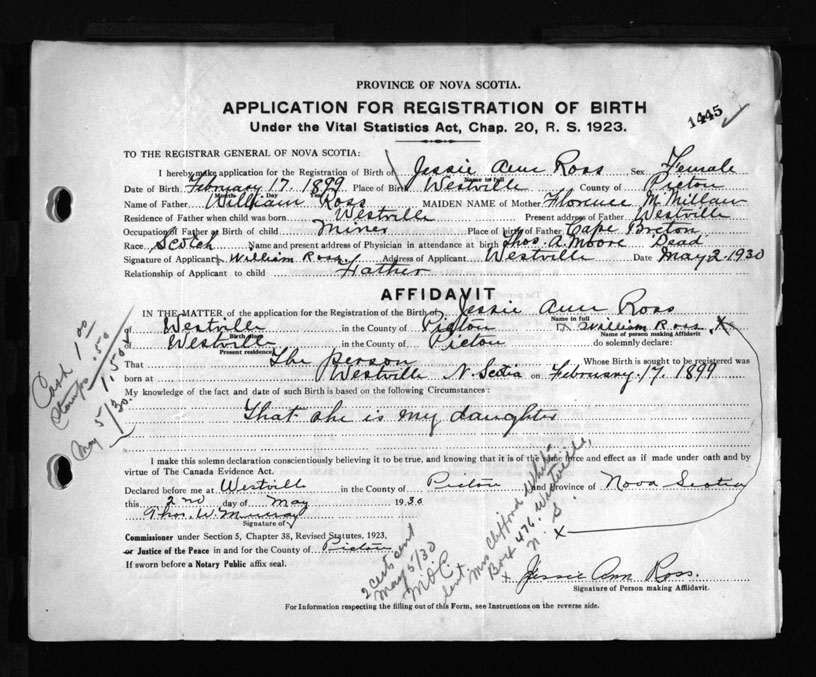 PROVINCE OF NOVA SCOTIA.
APPLICATION FOR REGISTRATION OF BIRTH
1445
Under the Vital Statistics Act, Chap. 20, R. S. 1923.
TO THE REGISTRAR GENERAL OF NOVA SCOTIA:
I hereby make application for the Registration of Birth of Jessie Ann Ross Sex Female
Name in full
Date of Birth February 17. 1899 Place of Birth Westville County of Picton
Month Day Year
Name of Father William Ross MAIDEN NAME of Mother Florence McMillan
Residence of Father when child was born Westville Present address of Father Westville
Occupation of Father at Birth of child Miner Place of birth of Father Cape Breton
Race Scotch Name and present address of Physician in attendance at birth Thos. A. Moore Dead
Signature of Applicant William Ross. Address of Applicant Westville Date May 2. 1930
Relationship of Applicant to child Father
AFFIDAVIT
IN THE MATTER of the application for the Registration of the Birth of Jessie Ann Ross
Name in full
of Westville in the County of Picton I, William Ross X
Birth place Name of person making Affidavit
of Westville in the County of Picton do solemnly declare:
Present residence
That The person Whose Birth is sought to be registered was
born at Westville N. Scotia on February. 17. 1899
My knowledge of the fact and date of such Birth is based on the following Circumstances:
That she is my daughter
I make this solemn declaration conscientiously believing it to be true, and knowing that it is of the same force and effect as if made under oath and by
virtue of The Canada Evidence Act.
Declared before me at Westville in the County of Picton and Province of Nova Scotia
this 2nd day of May 1930
Thos. W. Murray
Signature of
Commissioner under Section 5, Chapter 38, Revised Statutes, 1923,
or Justice of the Peace in and for the County of Picton
If sworn before a Notary Public affix seal.
x Jessie Ann Ross.
Signature of Person making Affidavit.
For Information respecting the filling out of this Form, see Instructions on the reverse side.
Cash 1 00
Stamps .50
1.50 x
May 5/30.
2 certs sent
May 5/30
M.O.C
sent. Mrs Clifford White
Box 476. Westville,
N. S.
x